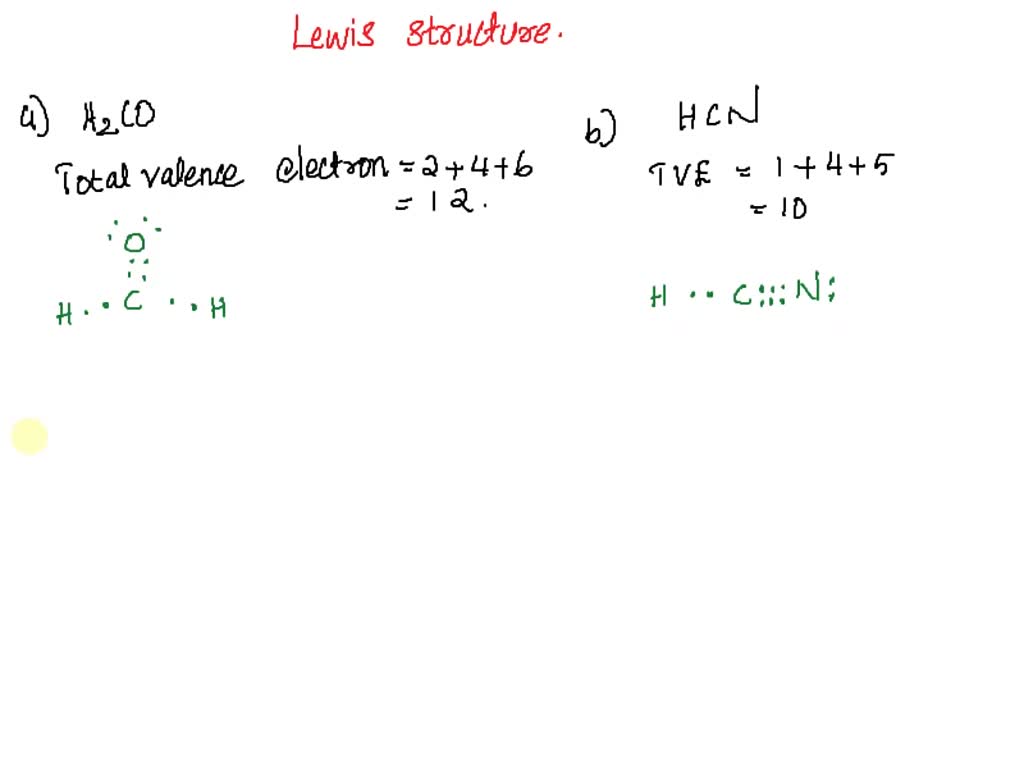 Lewis structure.
a) H2CO
Total valence electron = 2+4+6
= 12.
O
H C H
b) HCN
TVE = 1+4+5
= 10
H ·· C:::N: